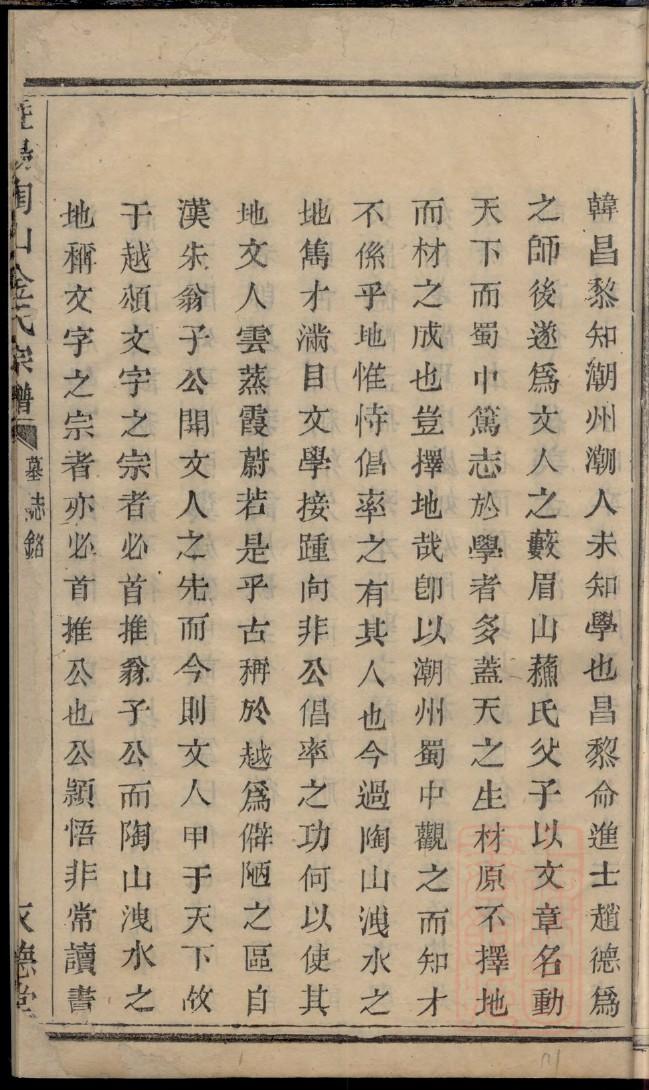 韓昌黎知潮州潮人未知學也昌黎命進士趙德爲
之師後遂爲文人之藪眉山蘓氏父子以文章名動
天下而蜀中篤志於學者多蓋天之生材原不擇地
而材之成也豈擇地哉卽以潮州蜀中觀之而知才
不係乎地惟恃倡率之有其人也今過陶山洩水之
地雋才滿目文學接踵向非公倡率之功何以使其
地文人雲蒸霞蔚若是乎古稱於越爲僻陋之區自
漢朱翁子公開文人之先而今則文人甲于天下故
于越頌文字之宗者必首推翁子公而陶山洩水之
地稱文字之宗者亦必首推公也公頴悟非常讀書
陶山金氏宗譜
墓志銘
德堂